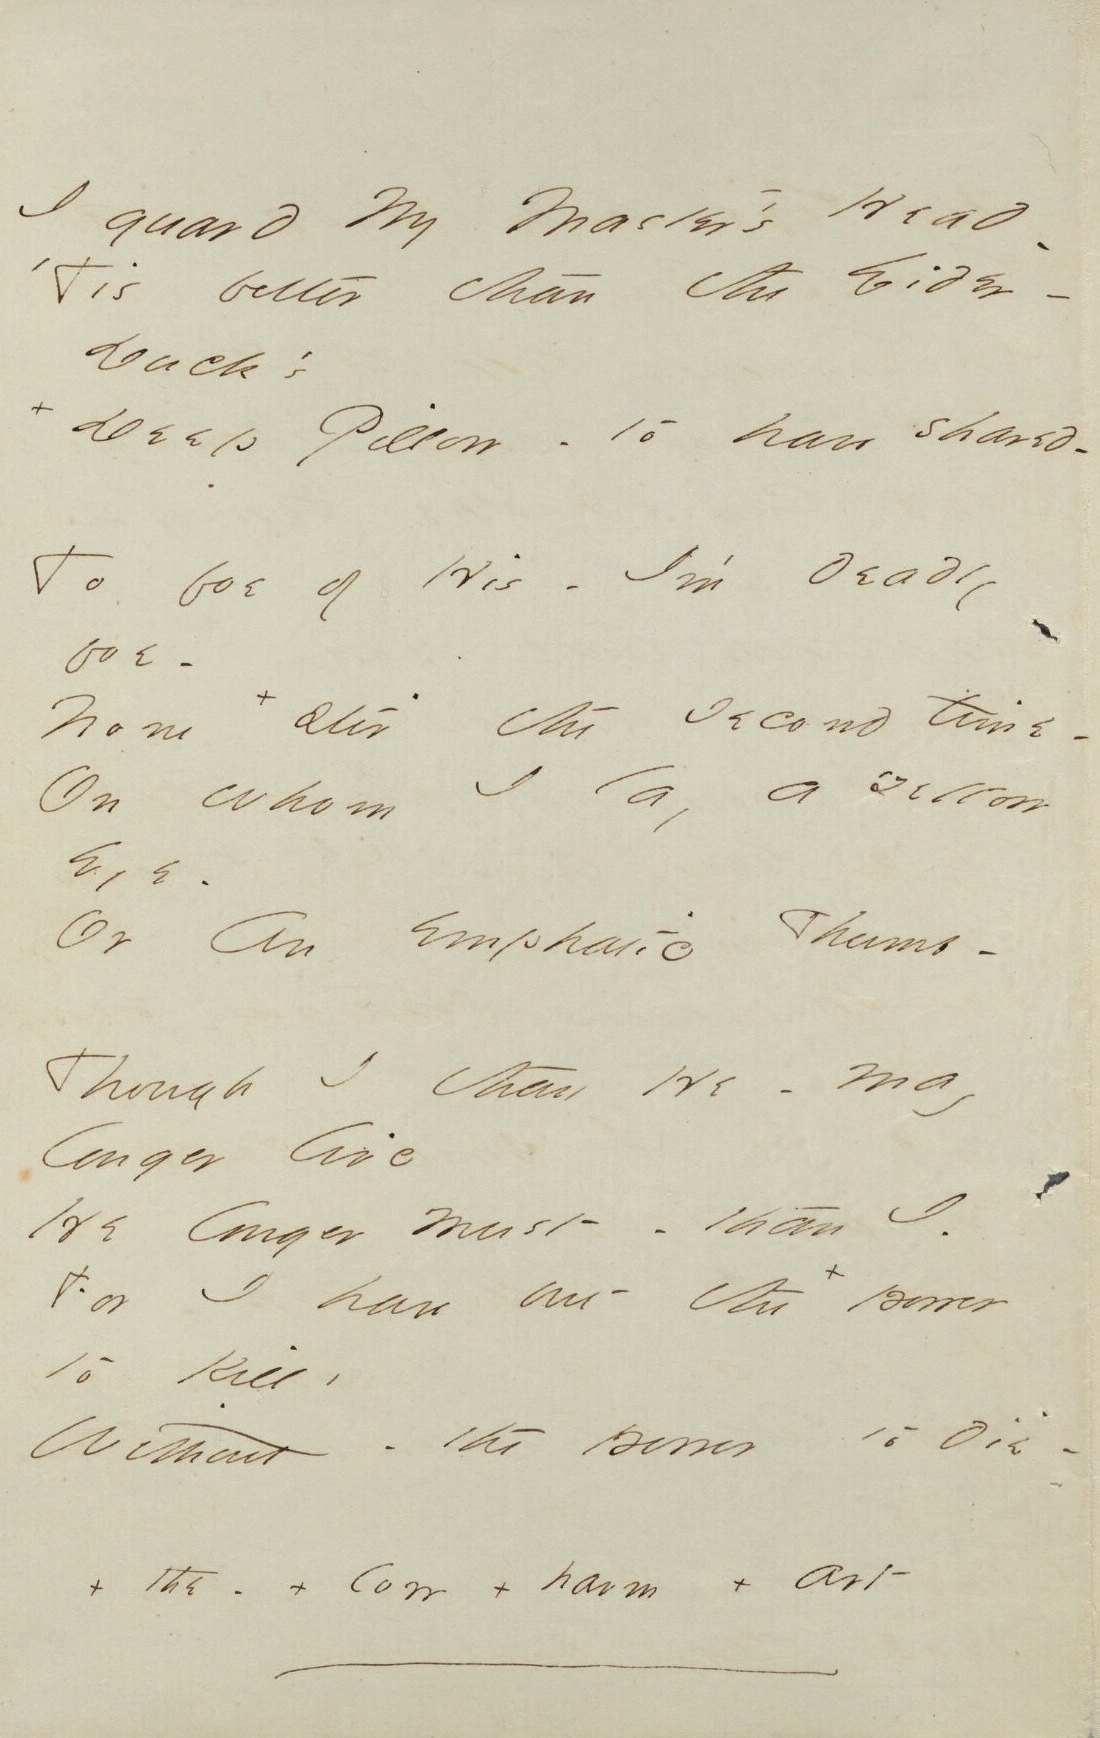 I guard My Master's Head -
'Tis better than the Eider -
Duck's
+ Deep Pillow - to have shared -
To foe of His - I'm deadly
foe -
None + stir the second time -
On whom I lay a Yellow
Eye -
Or an emphatic Thumb -
Though I than He - may
longer live
He longer must - than I -
For I have but the + power
to kill,
Without - the power to die -
+ the - + low + harm + art